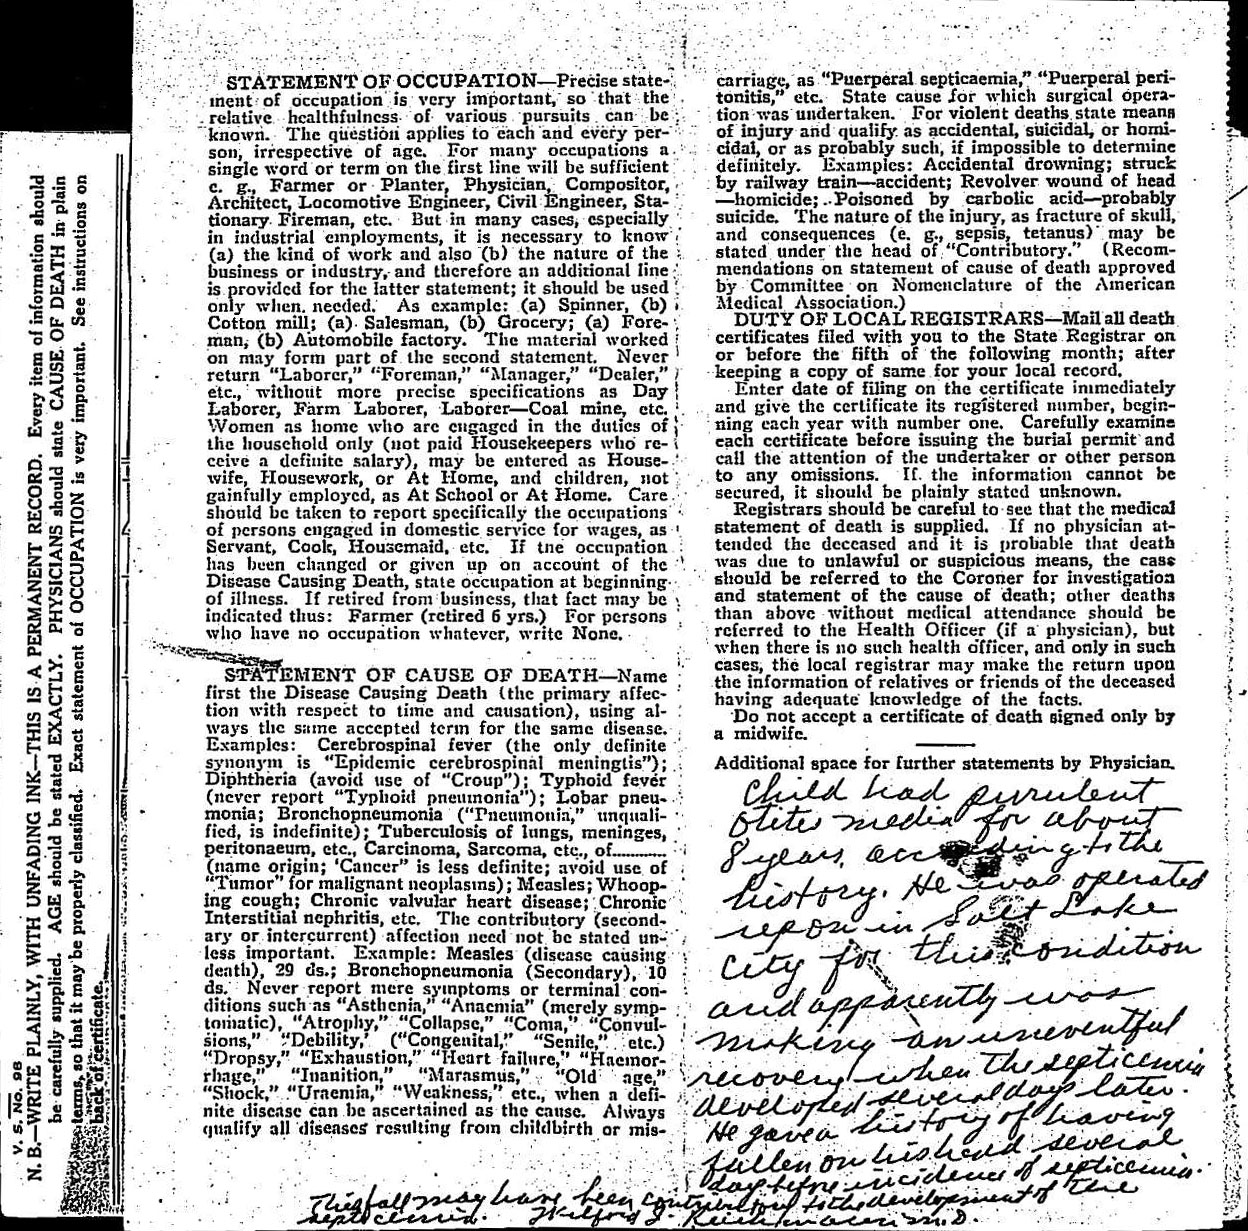 V. S. No. 98
N. B.—WRITE PLAINLY, WITH UNFADING INK—THIS IS A PERMANENT RECORD. Every item of information should
be carefully supplied. AGE should be stated EXACTLY. PHYSICIANS should state CAUSE OF DEATH in plain
terms, so that it may be properly classified. Exact statement of OCCUPATION is very important. See instructions on
back of certificate.
STATEMENT OF OCCUPATION—Precise state-
ment of occupation is very important, so that the
relative healthfulness of various pursuits can be
known. The question applies to each and every per-
son, irrespective of age. For many occupations a
single word or term on the first line will be sufficient
e. g., Farmer or Planter, Physician, Compositor,
Architect, Locomotive Engineer, Civil Engineer, Sta-
tionary Fireman, etc. But in many cases, especially
in industrial employments, it is necessary to know
(a) the kind of work and also (b) the nature of the
business or industry, and therefore an additional line
is provided for the latter statement; it should be used
only when needed. As example: (a) Spinner, (b)
Cotton mill; (a) Salesman, (b) Grocery; (a) Fore-
man, (b) Automobile factory. The material worked
on may form part of the second statement. Never
return "Laborer," "Foreman," "Manager," "Dealer,"
etc., without more precise specifications as Day
Laborer, Farm Laborer, Laborer—Coal mine, etc.
Women as home who are engaged in the duties of
the household only (not paid Housekeepers who re-
ceive a definite salary), may be entered as House-
wife, Housework, or At Home, and children, not
gainfully employed, as At School or At Home. Care
should be taken to report specifically the occupations
of persons engaged in domestic service for wages, as
Servant, Cook, Housemaid, etc. If the occupation
has been changed or given up on account of the
Disease Causing Death, state occupation at beginning
of illness. If retired from business, that fact may be
indicated thus: Farmer (retired 6 yrs.) For persons
who have no occupation whatever, write None.
STATEMENT OF CAUSE OF DEATH—Name
first the Disease Causing Death (the primary affec-
tion with respect to time and causation), using al-
ways the same accepted term for the same disease.
Examples: Cerebrospinal fever (the only definite
synonym is "Epidemic cerebrospinal meningtis");
Diphtheria (avoid use of "Croup"); Typhoid fever
(never report "Typhoid pneumonia"); Lobar pneu-
monia; Bronchopneumonia ("Pneumonia," unquali-
fied, is indefinite); Tuberculosis of lungs, meninges,
peritonaeum, etc., Carcinoma, Sarcoma, etc., of............
(name origin; 'Cancer" is less definite; avoid use of
"Tumor" for malignant neoplasms); Measles; Whoop-
ing cough; Chronic valvular heart disease; Chronic
Interstitial nephritis, etc. The contributory (second-
ary or intercurrent) affection need not be stated un-
less important. Example: Measles (disease causing
death), 29 ds.; Bronchopneumonia (Secondary), 10
ds. Never report mere symptoms or terminal con-
ditions such as "Asthenia," "Anaemia" (merely symp-
tomatic), "Atrophy," "Collapse," "Coma," "Convul-
sions," "Debility," ("Congenital," "Senile," etc.)
"Dropsy," "Exhaustion," "Heart failure," "Haemor-
rhage," "Inanition," "Marasmus," "Old age,"
"Shock," "Uraemia," "Weakness," etc., when a defi-
nite disease can be ascertained as the cause. Always
qualify all diseases resulting from childbirth or mis-
carriage, as "Puerperal septicaemia," "Puerperal peri-
tonitis," etc. State cause for which surgical opera-
tion was undertaken. For violent deaths state means
of injury and qualify as accidental, suicidal, or homi-
cidal, or as probably such, if impossible to determine
definitely. Examples: Accidental drowning; struck
by railway train—accident; Revolver wound of head
—homicide; Poisoned by carbolic acid—probably
suicide. The nature of the injury, as fracture of skull,
and consequences (e. g., sepsis, tetanus) may be
stated under the head of "Contributory." (Recom-
mendations on statement of cause of death approved
by Committee on Nomenclature of the American
Medical Association.)
DUTY OF LOCAL REGISTRARS—Mail all death
certificates filed with you to the State Registrar on
or before the fifth of the following month; after
keeping a copy of same for your local record.
Enter date of filing on the certificate immediately
and give the certificate its registered number, begin-
ning each year with number one. Carefully examine
each certificate before issuing the burial permit and
call the attention of the undertaker or other person
to any omissions. If the information cannot be
secured, it should be plainly stated unknown.
Registrars should be careful to see that the medical
statement of death is supplied. If no physician at-
tended the deceased and it is probable that death
was due to unlawful or suspicious means, the case
should be referred to the Coroner for investigation
and statement of the cause of death; other deaths
than above without medical attendance should be
referred to the Health Officer (if a physician), but
when there is no such health officer, and only in such
cases, the local registrar may make the return upon
the information of relatives or friends of the deceased
having adequate knowledge of the facts.
Do not accept a certificate of death signed only by
a midwife.
Additional space for further statements by Physician.
Child had purulent
otitis media for about
8 years, according to the
history. He was operated
upon in Salt Lake
City for this condition
and apparently was
making an uneventful
recovery when the septicemia
developed several days later.
He gave a history of having
fallen on his head several
days before incidence of septicemia.
This fall may have been contributory to the development of the
septicemia. Wilford J. M.D.